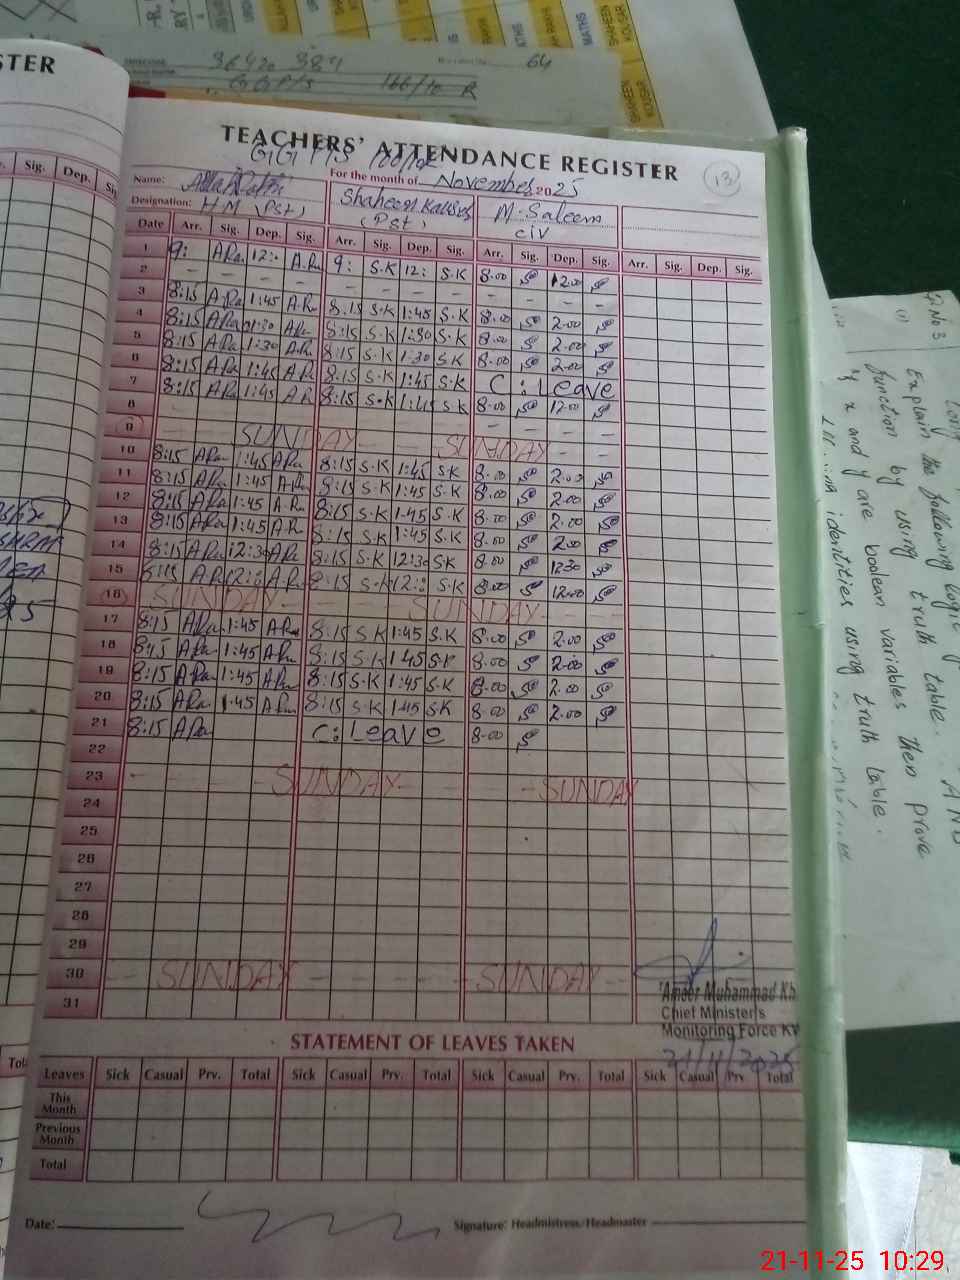 STER
36420 384
64
GGP/S 166/10 R
SHAHEEN KOUSAR
MATHS
TEACHERS' ATTENDANCE REGISTER
GGP/S
13
Name:
For the month of November 2025
Designation: H.M (Pst)
Shaheen Kausar (Pst)
M. Saleem CIV
Date Arr. Sig. Dep. Sig. Arr. Sig. Dep. Sig. Arr. Sig. Dep. Sig. Arr. Sig. Dep. Sig.
1 9: ARa 12: A.Ra 9: S.K 12: S.K 8.00 12.00
2 – – – – – – – – – – – –
3 8:15 A.Ra 1:45 A.Ra 8:15 S.K 1:45 S.K 8.00 2.00
4 8:15 ARa 1:30 ARa 8:15 S.K 1:30 S.K 8.00 2.00
5 8:15 ARa 1:30 A.Ra 8:15 S.K 1:30 S.K 8.00 2.00
6 8:15 ARa 1:45 A.Ra 8:15 S.K 1:45 S.K C:leave
7 8:15 ARa 1:45 A.R 8:15 S.K 1:45 S.K 8.00 12.00
8
9 SUNDAY SUNDAY
10 8:15 ARa 1:45 ARa 8:15 S.K 1:45 S.K 8.00 2.00
11 8:15 ARa 1:45 A.Ra 8:15 S.K 1:45 S.K 8.00 2.00
12 8:15 ARa 1:45 A.Ra 8:15 S.K 1:45 S.K 8.00 2.00
13 8:15 ARa 1:45 A.R 8:15 S.K 1:45 S.K 8.00 2.00
14 8:15 ARa 12:30 ARa 8:15 S.K 12:30 S.K 8.00 12.30
15 8:15 A.Ra 12: A.Ra 8:15 S.K 12: S.K 8.00 12.00
16 SUNDAY SUNDAY
17 8:15 ARa 1:45 ARa 8:15 S.K 1:45 S.K 8.00 2.00
18 8:15 ARa 1:45 ARa 8:15 S.K 1:45 S.K 8.00 2.00
19 8:15 ARa 1:45 A.Ra 8:15 S.K 1:45 S.K 8.00 2.00
20 8:15 ARa 1:45 ARa 8:15 S.K 1:45 S.K 8.00 2.00
21 8:15 ARa C:Leave 8.00
22
23 SUNDAY SUNDAY
24
25
26
27
28
29
30 SUNDAY SUNDAY
31
Ameer Muhammad Kh
Chief Minister's
Monitoring Force
21/11/2025
STATEMENT OF LEAVES TAKEN
Leaves Sick Casual Prv. Total Sick Casual Prv. Total Sick Casual Prv. Total Sick Casual Prv. Total
This Month
Previous Month
Total
Date:
Signature: Headmistress/Headmaster
Sig. Dep. Sig.
Q No 3
(i) Explain the following logic
function by using truth table.
if x and y are boolean variables then prove
identities using truth table.
21-11-25 10:29